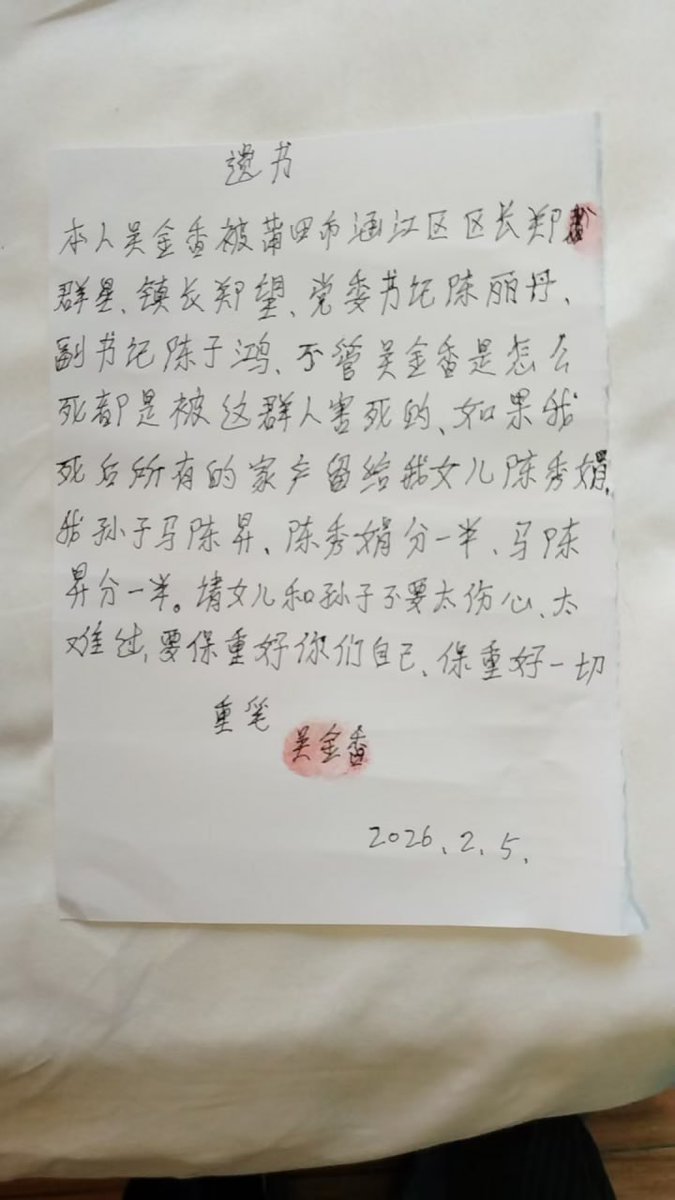 遗书
本人吴金香被莆田市涵江区区长郑
群星、镇长郑望、党委书记陈丽丹、
副书记陈于鸿、不管吴金香是怎么
死都是被这群人害死的、如果我
死后所有的家产留给我女儿陈秀娟,
我孙子马陈昇、陈秀娟分一半、马陈
昇分一半。请女儿和孙子不要太伤心、太
难过,要保重好你们自己、保重好一切
重笔
吴金香
2026.2.5.